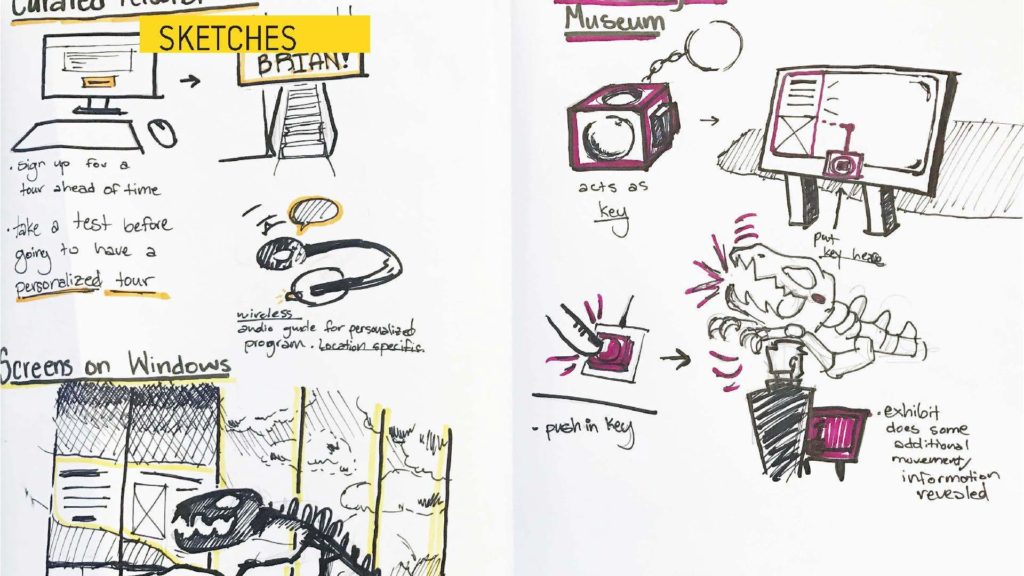 Curated
SKETCHES
BRIAN!
• sign up for a
tour ahead of time
• take a test before
going to have a
personalized tour
wireless
audio guide for personalized
program. Location specific.
Screens on Windows
Museum
acts as
key
put
key here
• push in key
• exhibit
does some
additional
movement/
information
revealed